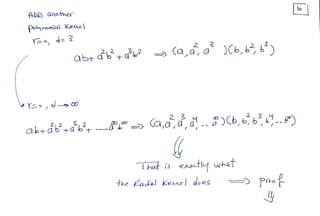 10
ADD another
polynomial Kernel
r=0, d=3
ab + a²b² + a³b³ ⇒ (a, a², a³)(b, b², b³)
r=0, d→∞
ab + a²b² + a³b³ + ---- a^∞b^∞ ⇒ (a, a², a³, a⁴, .. a^∞)(b, b², b³, b⁴, .. b^∞)
That is exactly what
the Radial Kernel does ⇒ proof